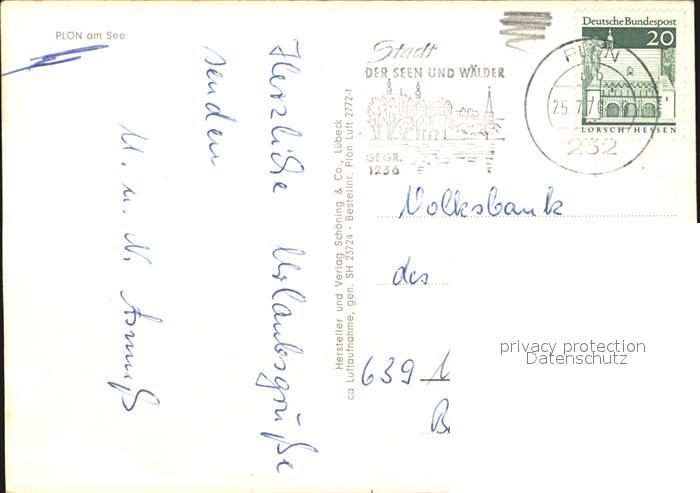 PLÖN am See
Herzliche Urlaubsgrüße
senden
Stadt
DER SEEN UND WÄLDER
GEGR.
1236
PLÖN
25.7.
232
Deutsche Bundespost
20
LORSCH/HESSEN
Hersteller und Verlag Schöning & Co., Lübeck
ca Luftaufnahme, gen. SH 23724 - Bestellnr. Plön Luft 2772-f
Volksbank
639
privacy protection
Datenschutz